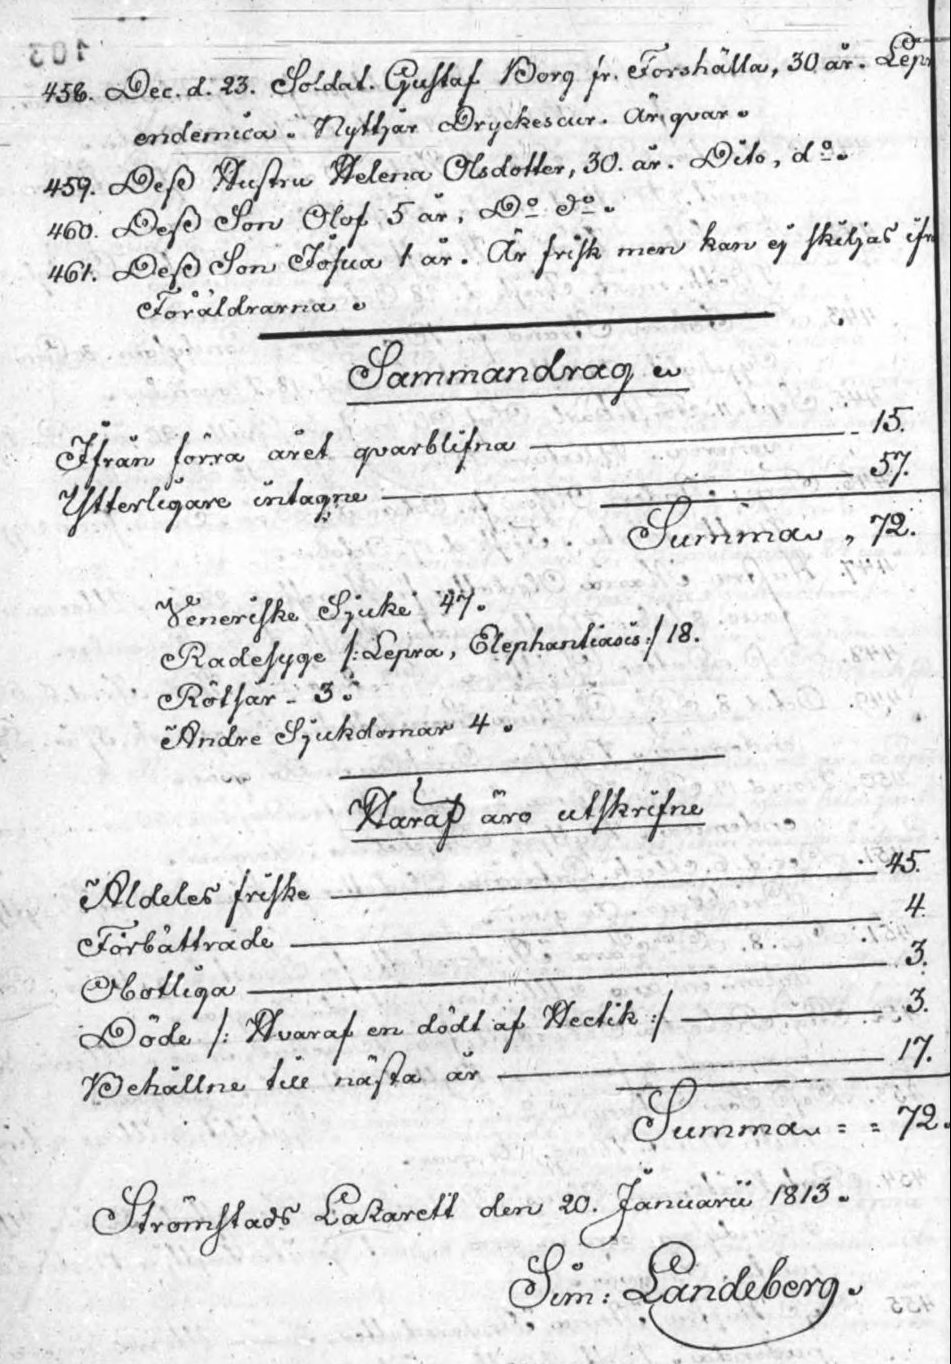 103
458. Dec. d. 23. Soldat. Gustaf Borg fr. Forshälla, 30 år. Lepr
endemica. Nyttjar Dryckescur. Är qvar.
459. Deß Hustru Helena Olsdotter, 30. år. Dito, do.
460. Deß Son Olof 5 år, Do do.
461. Deß Son Josua 1 år. Är frisk men kan ej skiljas ifr
Föräldrarna.
Sammandrag
Ifrån förra året qvarblifna 15.
Ytterligare intagne 57.
Summa, 72.
Veneriske Sjuke 47.
Radesyge /: Lepra, Elephantiasis :/ 18.
Rötsår - 3.
Andre Sjukdomar 4.
Haraf äro utskrifne
Aldeles friske 45.
Förbättrade 4.
Obotliga 3.
Döde /: Hvaraf en dödt af Hectik :/ 3.
Behållne till nästa år 17.
Summa = = 72.
Strömstads Lazarett den 20. Januarii 1813.
Sim: Landeberg.